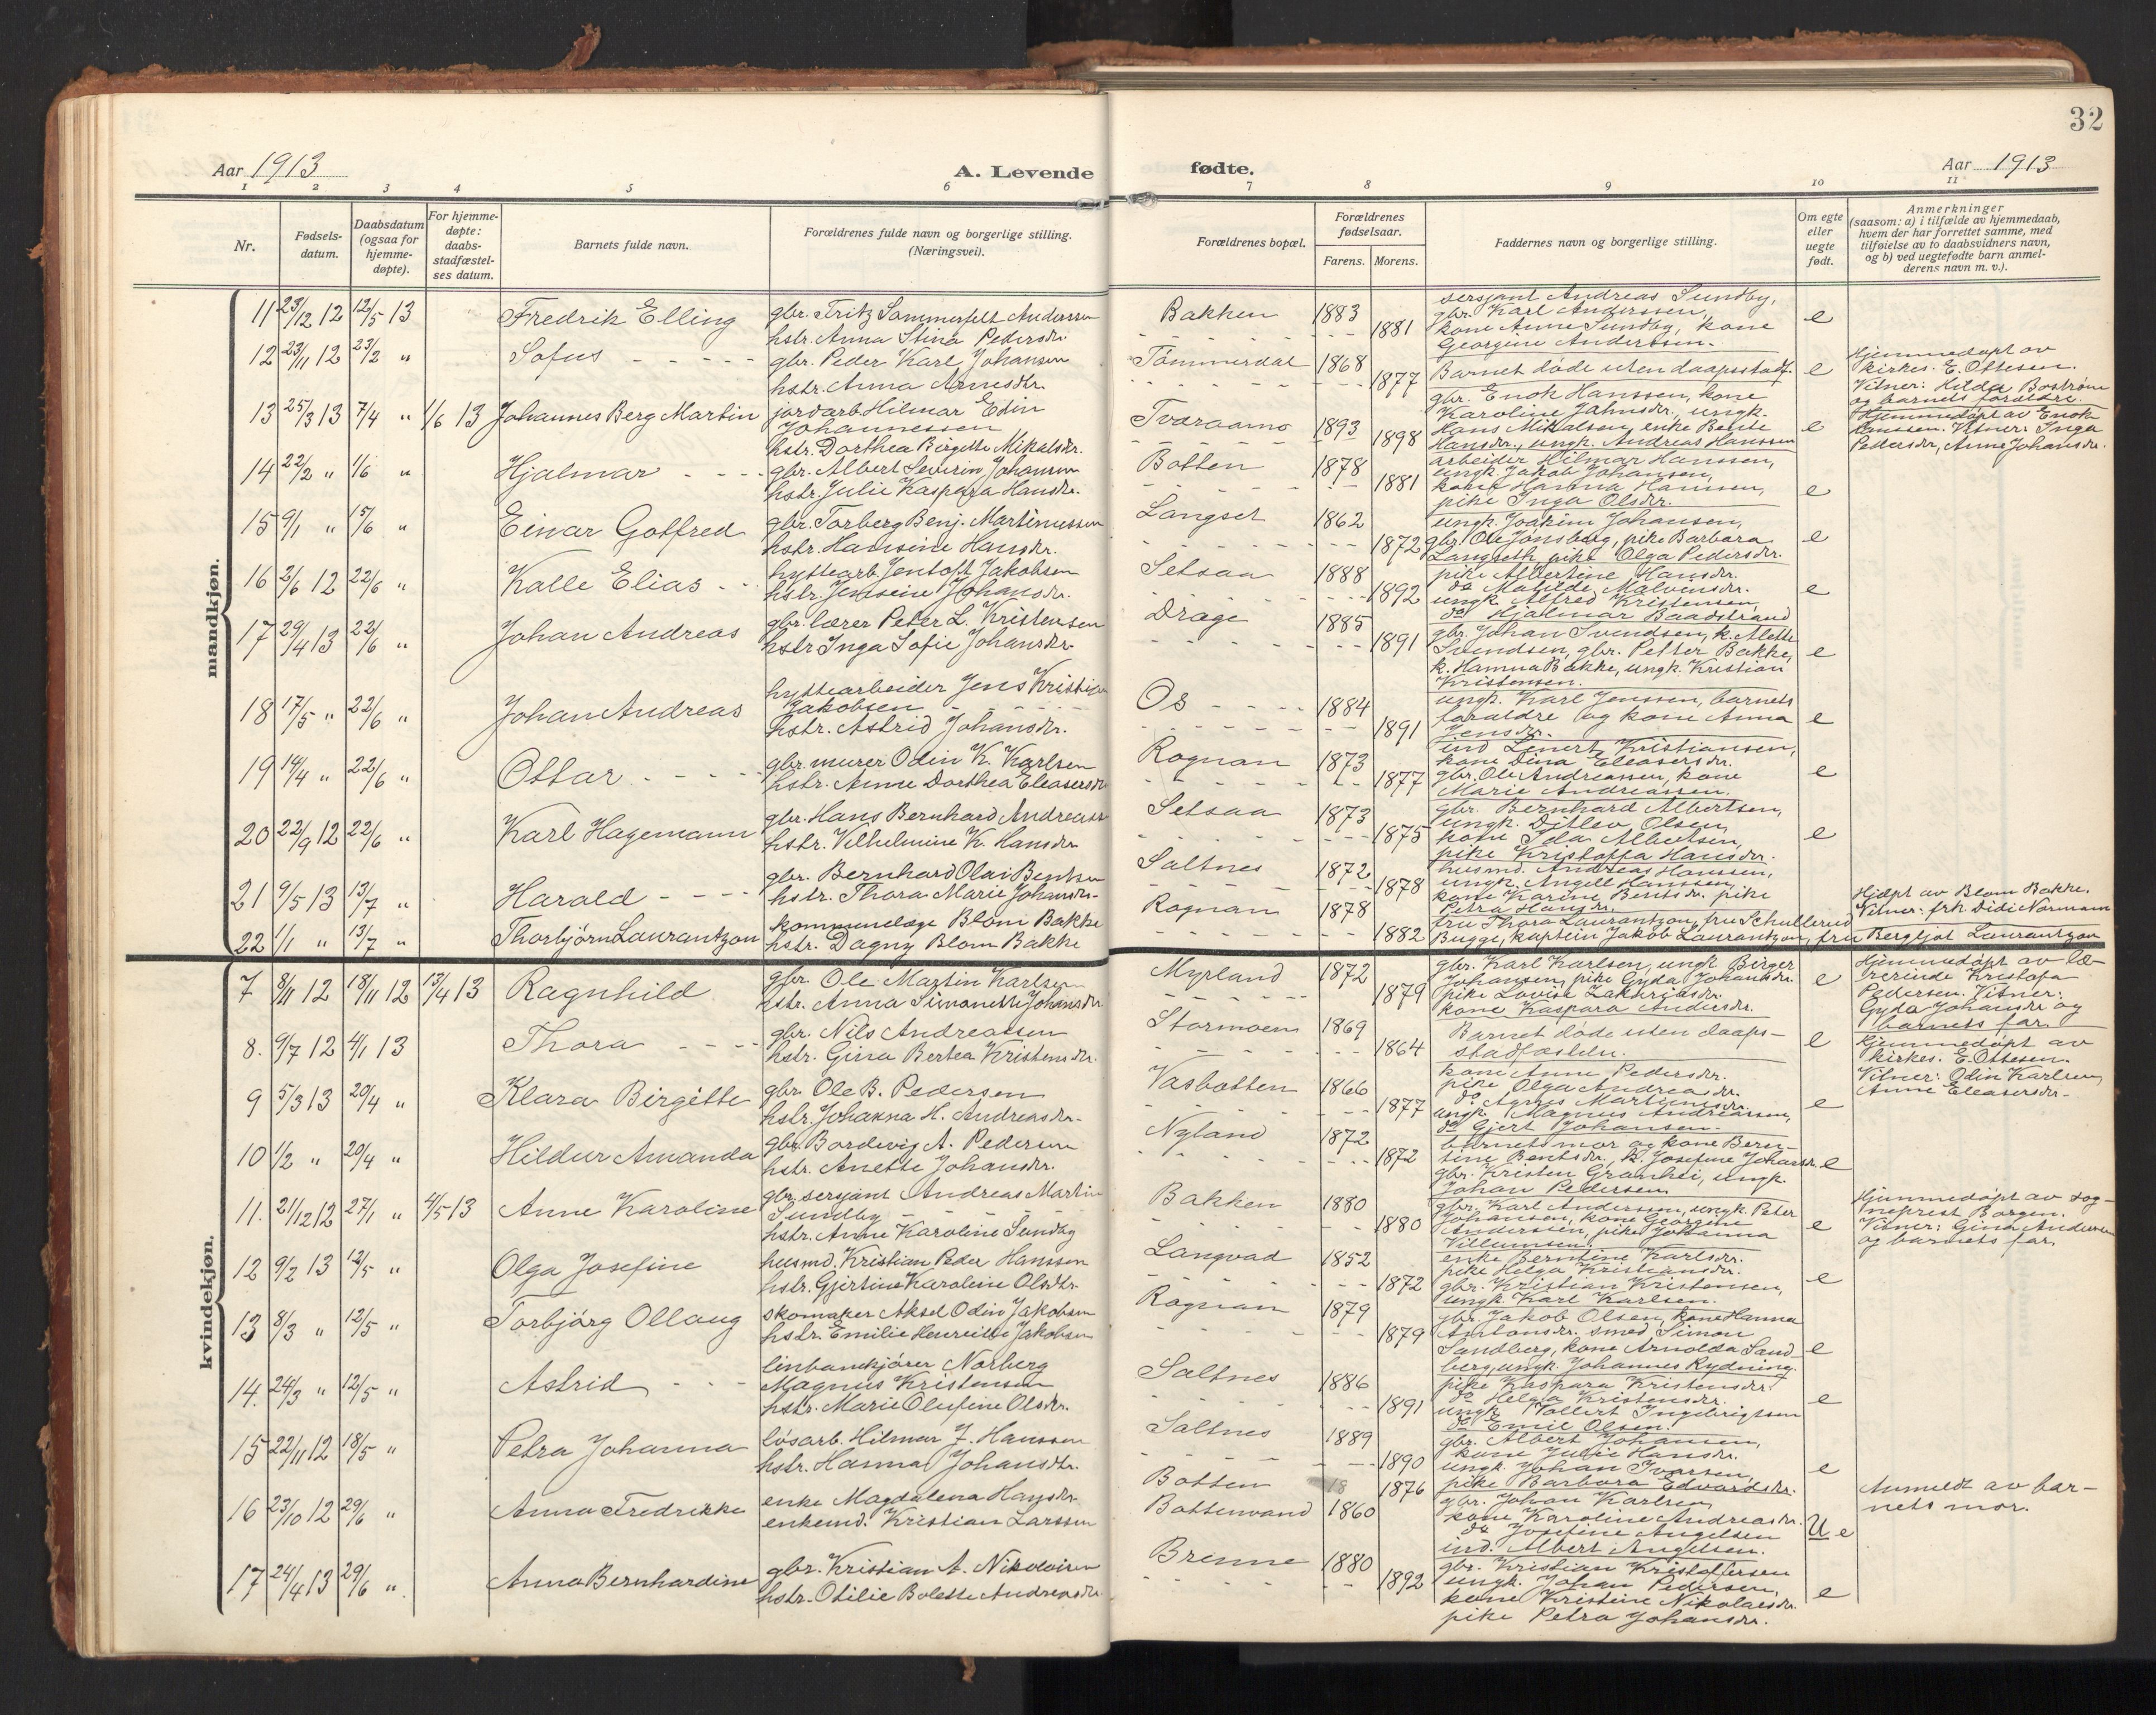 32
Aar 1913
A. Levende
fødte.
Aar 1913
1 2 3 4 5 6 7 8 9 10 11
Nr.
Fødsels-
datum.
Daabsdatum
(ogsaa for
hjemme-
døpte).
For hjemme-
døpte:
daabs-
stadfæstel-
ses datum.
Barnets fulde navn.
Forældrenes fulde navn og borgerlige stilling.
(Næringsvei).
Forældrenes bopæl.
Forældrenes
fødselsaar.
Farens. Morens.
Faddernes navn og borgerlige stilling.
Om egte
eller
uegte
født.
Anmerkninger
(saasom: a) i tilfælde av hjemmedaab,
hvem der har forrettet samme, med
tilføielse av to daabsvidners navn,
og b) ved uegtefødte barn anmel-
derens navn m. v.).
mandkjøn.
11 23/12 12 12/5 13 Fredrik Elling
gbr. Fritz Sommerfelt Anderssen
hstr. Anna Stina Pedersdr.
Bakken 1883 1881
sersjant Andreas Sundby,
gbr. Karl Anderssen,
kone Anne Sundby, kone
Georgine Anderssen.
e
12 23/11 12 23/2 " Sofus
gbr. Peder Karl Johansen
hstr. Anna Arnesdtr.
Tømmerdal 1868 1877
Barnet døde uten daapsstadf.
e
Hjemmedøpt av
kirkes. E. Ottesen.
Vitner: Hilda Boström
og barnets forældre.
13 25/3 13 7/4 " 1/6 13 Johannes Berg Martin
jordarb. Hilmar Edin
Johannessen
hstr. Dorthea Birgitte Mikalsdr.
Tveraamo 1893 1898
gbr. Enok Hanssen, kone
Karoline Jahnsdr., ungk.
Hans Mikalsen, enke Bente
Hansdr., ungk. Andreas Hanssen
e
Hjemmedøpt av Enok
Hanssen. Vitner: Inga
Pedersdr, Anne Johansdr.
14 22/2 " 1/6 " Hjalmar
gbr. Albert Severin Johansen
hstr. Julie Kaspara Hansdr.
Botten 1878 1881
arbeider Hilmar Hanssen,
ungk. Jakob Johansen,
kone Hanna Hanssen,
pike Inga Olsdr.
e
15 9/1 " 15/6 " Einar Gotfred
gbr. Torberg Benj. Martinussen
hstr. Hansine Hansdr.
Langset 1862 1872
ungk. Joakim Johansen,
gbr. Ole Jonsberg, pike Barbara
Langseth, pike Olga Pedersdr.
e
16 2/6 12 22/6 " Kalle Elias
hyttearb. Jentoft Jakobsen
hstr. Jensine Johansdr.
Setsaa 1888 1892
pike Albertine Hansdr.
do Matilde Malvensdr.
ungk. Alfred Kristensen,
do Hjalmar Baadstrand
e
17 29/4 13 22/6 " Johan Andreas
gbr. lærer Peter L. Kristensen
hstr Inga Sofie Johansdr.
Drage 1885 1891
gbr. Johan Svendsen, k. Mette
Svendsen, gbr. Petter Bakke,
k. Hanna Bakke, ungk. Kristian
Kristensen.
e
18 17/5 " 22/6 " Johan Andreas
hyttearbeider Jens Kristian
Jakobsen
hstr. Astrid Johansdr.
Os 1884 1891
ungk. Karl Jenssen, barnets
forældre og kone Anna
Jensdr.
e
19 14/4 " 22/6 " Ottar
gbr. murer Odin K. Karlsen
hstr. Anne Dorthea Eleasersdr
Rognan 1873 1877
ind Lenert Kristiansen,
kone Dina Eleasersdr.
gbr. Ole Andreassen, kone
Marie Andreassen.
e
20 22/9 12 22/6 " Karl Hagemann
gbr. Hans Bernhard Andreass
hstr. Vilhelmine K. Hansdr
Setsaa 1873 1875
gbr. Bernhard Albertsen,
ungk. Ditlev Olsen,
kone Ida Albertsen,
pike Kristoffa Hansdr.
e
21 9/5 13 13/7 " Harald
gbr. Bernhard Olai Bentsen
hstr. Thora Marie Johansdr.
Saltnes 1872 1878
husmd. Andreas Hanssen,
ungk. Angell Hanssen,
kone Karine Bentsdr. pike
Petra Hansdr.
22 1/1 " 13/7 " Thorbjørn Laurantzon
kommunelæge Blom Bakke
hstr. Dagny Blom Bakke
Rognan 1878 1882
fru Thora Laurantzon, fru Schullerud
Bugge, kaptein Jakob Laurantzon, fru Bergljot Laurantzon
Hjdøpt av Blom Bakke.
Vitner: frk. Didi Normann
kvindekjøn.
7 8/11 12 18/11 12 13/4 13 Ragnhild
gbr. Ole Martin Karlsen
hstr. Anna Simonette Johansdr
Myrland 1872 1879
gbr. Karl Karlsen, ungk. Birger
Johansen, pike Gyda Johansdr.
pike Lovise Zakariasdr.
kone Kaspara Andersdr.
e
Hjemmedøpt av læ-
rerinde Kristofa
Pedersen. Vitner:
Gyda Johansdr og
barnets far.
8. 9/7 12 4/1 13 Thora
gbr. Nils Andreassen
hstr. Gina Bertea Kristensdr.
Stormoen 1869 1864
Barnet døde uten daaps-
stadfæsteln.
e
Hjemmedøpt av
kirkes. E. Ottesen.
Vitner: Odin Karlsen,
Anne Eleasersdr.
9 5/3 13 20/4 " Klara Birgitte
gbr. Ole B. Pedersen
hstr. Johanna H. Andreasdr.
Vasbotten 1866 1877
kone Anne Pedersdr.
pike Olga Andreasdr.
do Agnes Martinusdr.
ungk. Magnus Andreassen,
do Gjert Johansen.
e
10 1/2 " 20/4 " Hildur Amanda
gbr. Bordevig A. Pedersen
hstr. Anette Johansdr.
Nyland 1872 1872
barnets mor og kone Beren-
tine Bentsdr., k. Josefine Johansdr.
gbr. Kristen Granhei, ungk.
Johan Pedersen
e
11. 21/12 12 27/1 " 4/5 13 Anne Karoline
gbr. sersjant Andreas Martin
Sundby
hstr. Anne Karoline Sundby
Bakken 1880 1880
gbr. Karl Anderssen, ungk. Peter
Johansen, kone Georgine
Anderssen, pike Johanna
Villumsen.
e
Hjemmedøpt av sog-
neprest Borgen.
Vitner: Gina Andersen
og barnets far.
12 9/2 13 12/5 " Olga Josefine
husmd. Kristian Peder Hanssen
hstr. Gjertine Karoline Olsdtr.
Langvad 1852 1872
enke Berntine Karlsdr.
pike Helga Kristiansdr.
gbr. Kristian Kristensen,
ungk. Karl Karlsen.
e
13 8/3 " 12/5 " Torbjørg Ollaug
skomaker Aksel Odin Jakobsen
hstr. Emilie Henreitte Jakobsen
Rognan 1879 1879
gbr. Jakob Olsen, kone Hanna
Antonsdr. smed Simon
Sandberg, kone Arnolda Sand-
berg, ungk. Johannes Rydning.
e
14. 24/3 " 12/5 " Astrid
linbanekjører Norberg
Magnus Kristensen
hstr. Marie Olufine Olsdr.
Saltnes 1886 1891
pike Kaspara Kristensdr.
do Helga Kristensdr.
ungk. Tollert Ingebrigtsen
do Emil Olsen.
e
15 22/11 12 18/5 " Petra Johanna
løsarb. Hilmar J. Hanssen
hstr. Hanna Johansdtr.
Saltnes 1889 1890
gbr. Albert Johansen,
kone Julie Hansdr.
ungk. Johan Ivarsen,
pike Barbara Edvardsdr.
e
16 23/10 12 29/6 " Anna Fredrikke
enke Magdalena Hansdr.
enkemd. Kristian Larssen
Botten 18 1876
Bottenvand 1860
gbr. Johan Karlsen
kone Karoline Andreasdr.
do Josefine Angelsen
ind. Albert Angelsen.
U e
Anmeldt av bar-
nets mor.
17 24/4 13 29/6 " Anna Bernhardine
gbr. Kristian A. Nikolaisen
hstr. Otilie Bolette Andreasdr.
Brenne 1880 1892
gbr. Kristian Kristoffersen
ungk. Johan Pedersen,
kone Kristine Nikolaisdr.
pike Petra Johansdr.
e